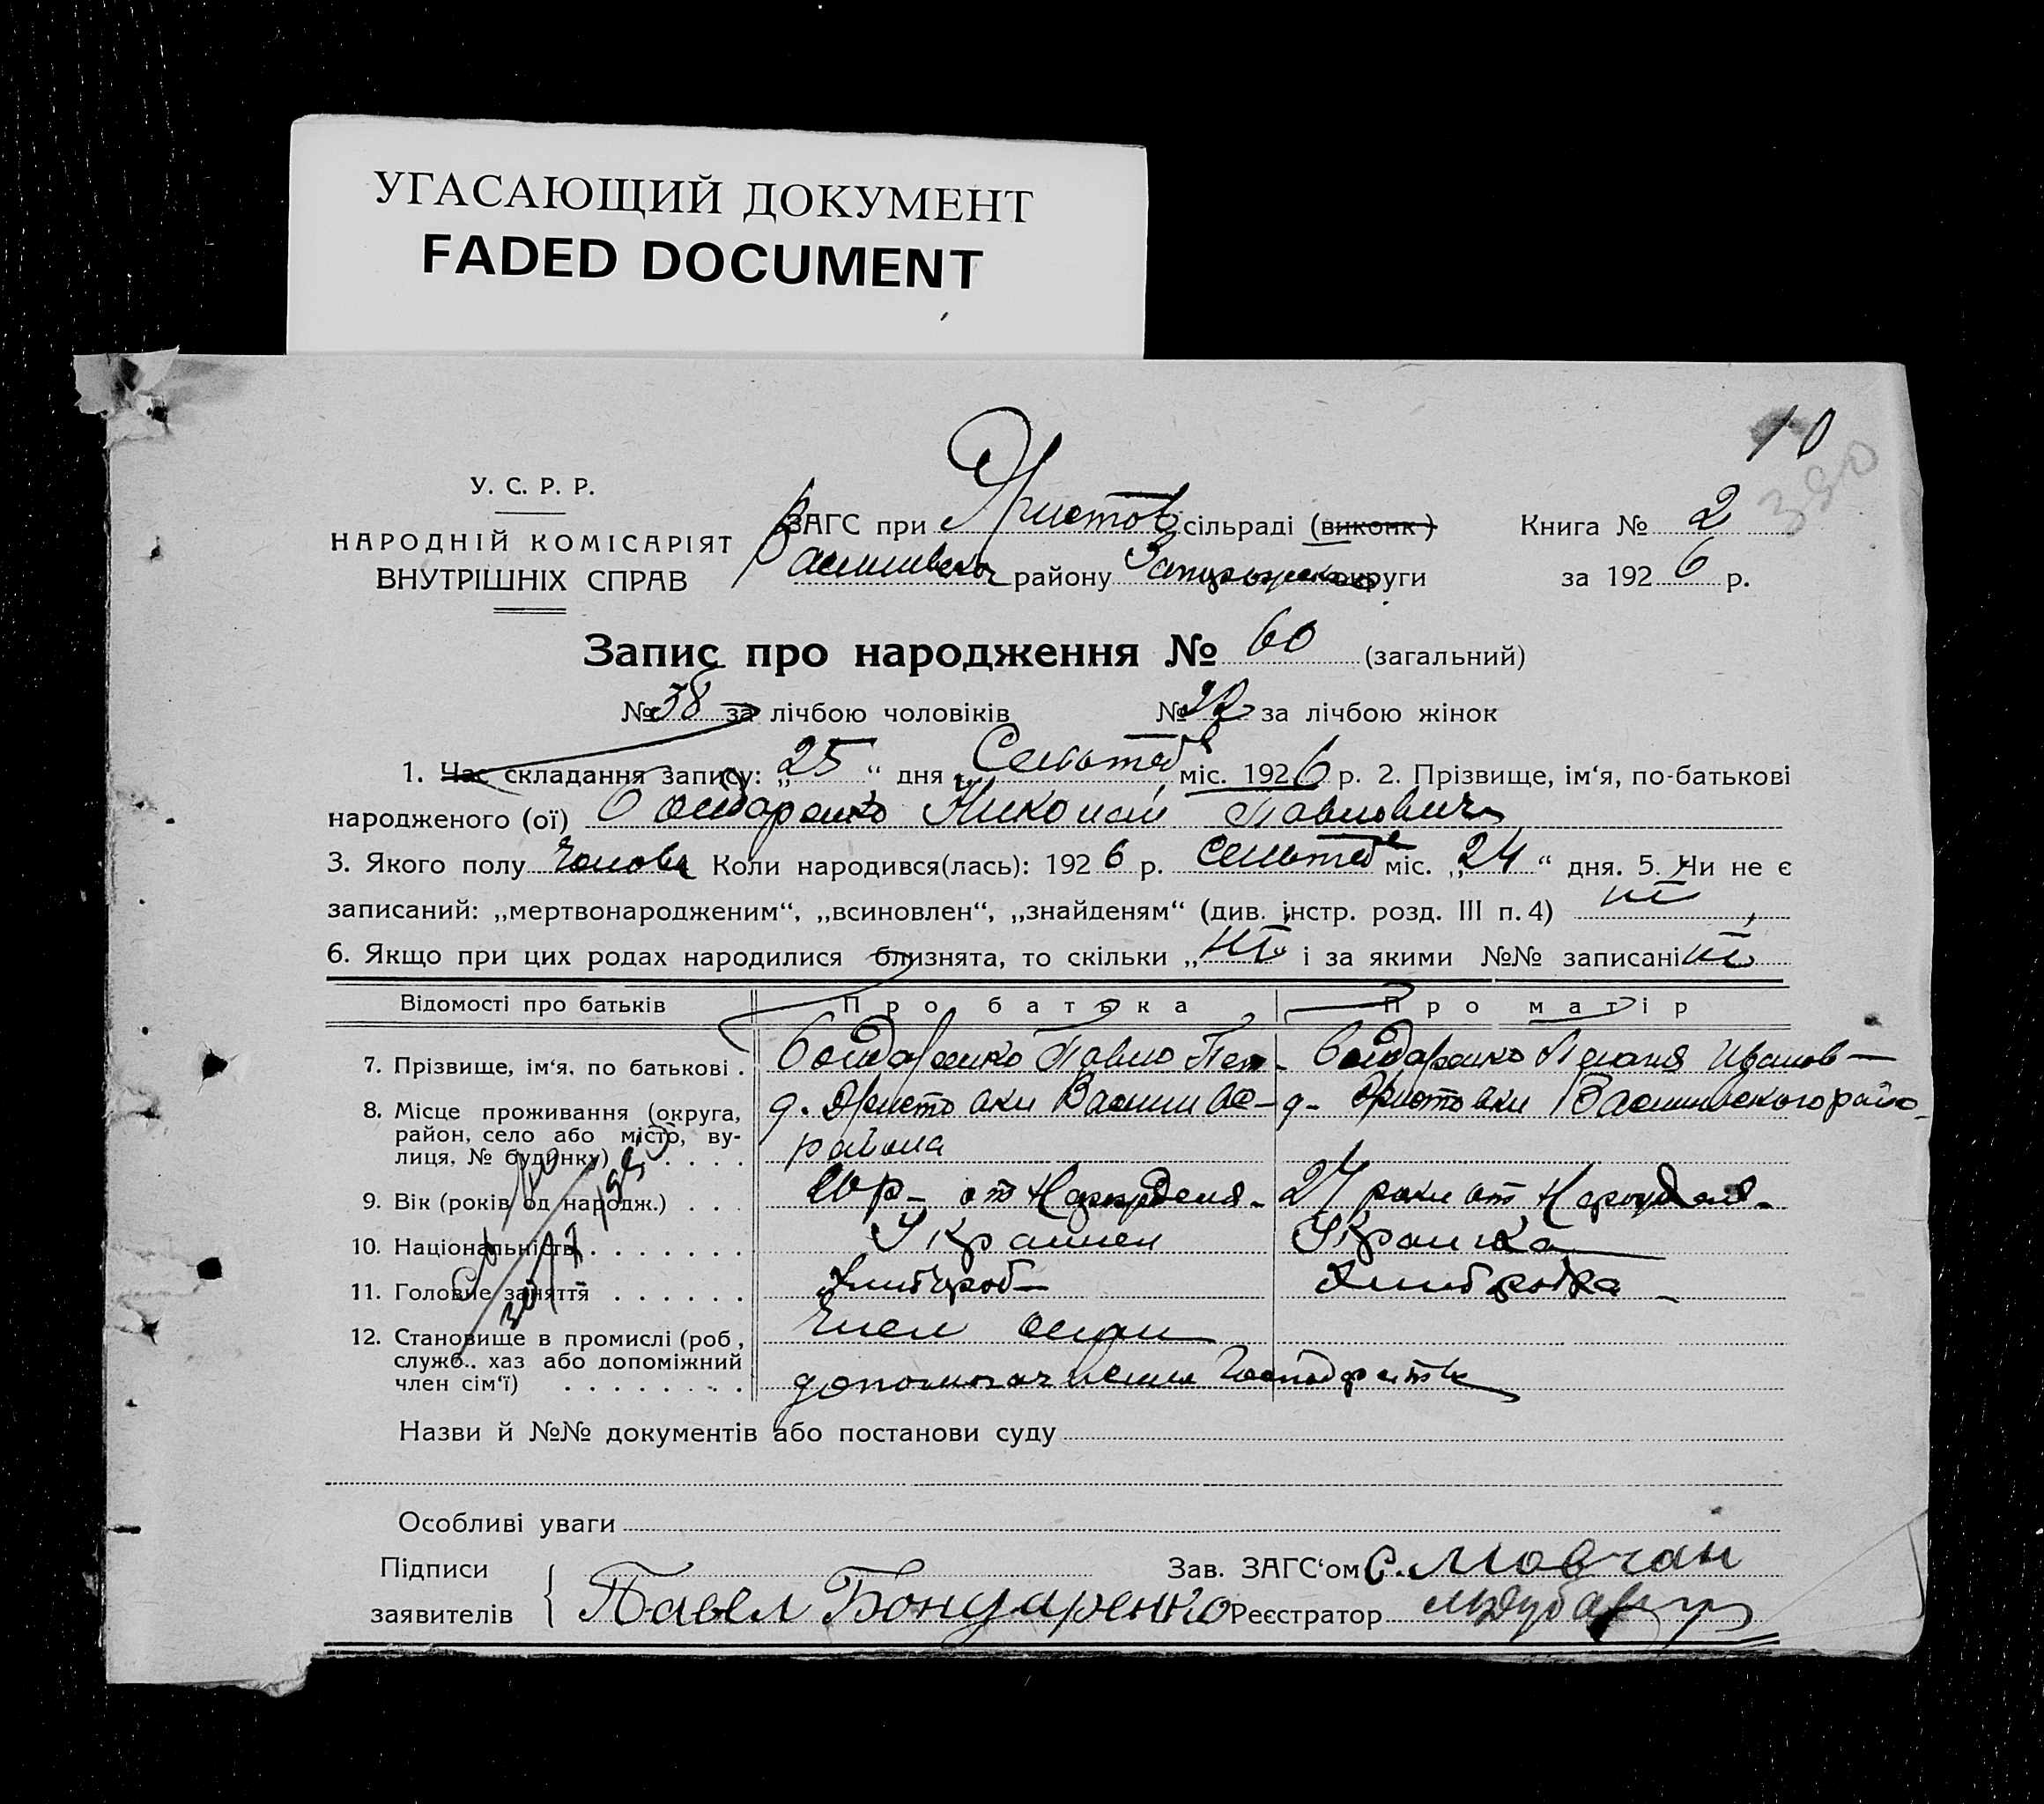 УГАСАЮЩИЙ ДОКУМЕНТ
FADED DOCUMENT
10
380
У. С. Р. Р.
НАРОДНІЙ КОМІСАРІЯТ
ВНУТРІШНІХ СПРАВ
ЗАГС при Христов сільраді (виконк)
району округи
Книга № 2
за 1926 р.
Запис про народження № 60 (загальний)
№ 38 за лічбою чоловіків № 22 за лічбою жінок
1. Час складання запису: „25“ дня міс. 1926 р. 2. Прізвище, ім‘я, по-батькові
народженого (ої) Бондаренко Николай Павлович
3. Якого полу Чолов Коли народився(лась): 1926 р. міс. „24“ дня. 5. Чи не є
записаний: „мертвонародженим“, „всиновлен“, „знайденям“ (див. інстр. розд. III п. 4) ні
6. Якщо при цих родах народилися близнята, то скільки „ні“ і за якими №№ записані ні
Відомості про батьків Про батька Про матір
7. Прізвище, ім‘я, по батькові . Бондаренко Павло Бондаренко Иванов
8. Місце проживання (округа,
район, село або місто, ву-
лиця, № будинку) . . . . района
9. Вік (років од народж.) . . . от Народженя 27 роки от Народженя
10. Національність . . . . . . . Украинец Украинка
11. Головне заняття . . . . . . Хлибороб Хлиборобка
12. Становище в промислі (роб.,
служб.. хаз або допоміжний
член сім‘ї) . . . . . . . . Член
Назви й №№ документів або постанови суду
Особливі уваги
Підписи
заявителів
Павел Бондаренко
Зав. ЗАГС‘ом С. Мовчан
Реєстратор